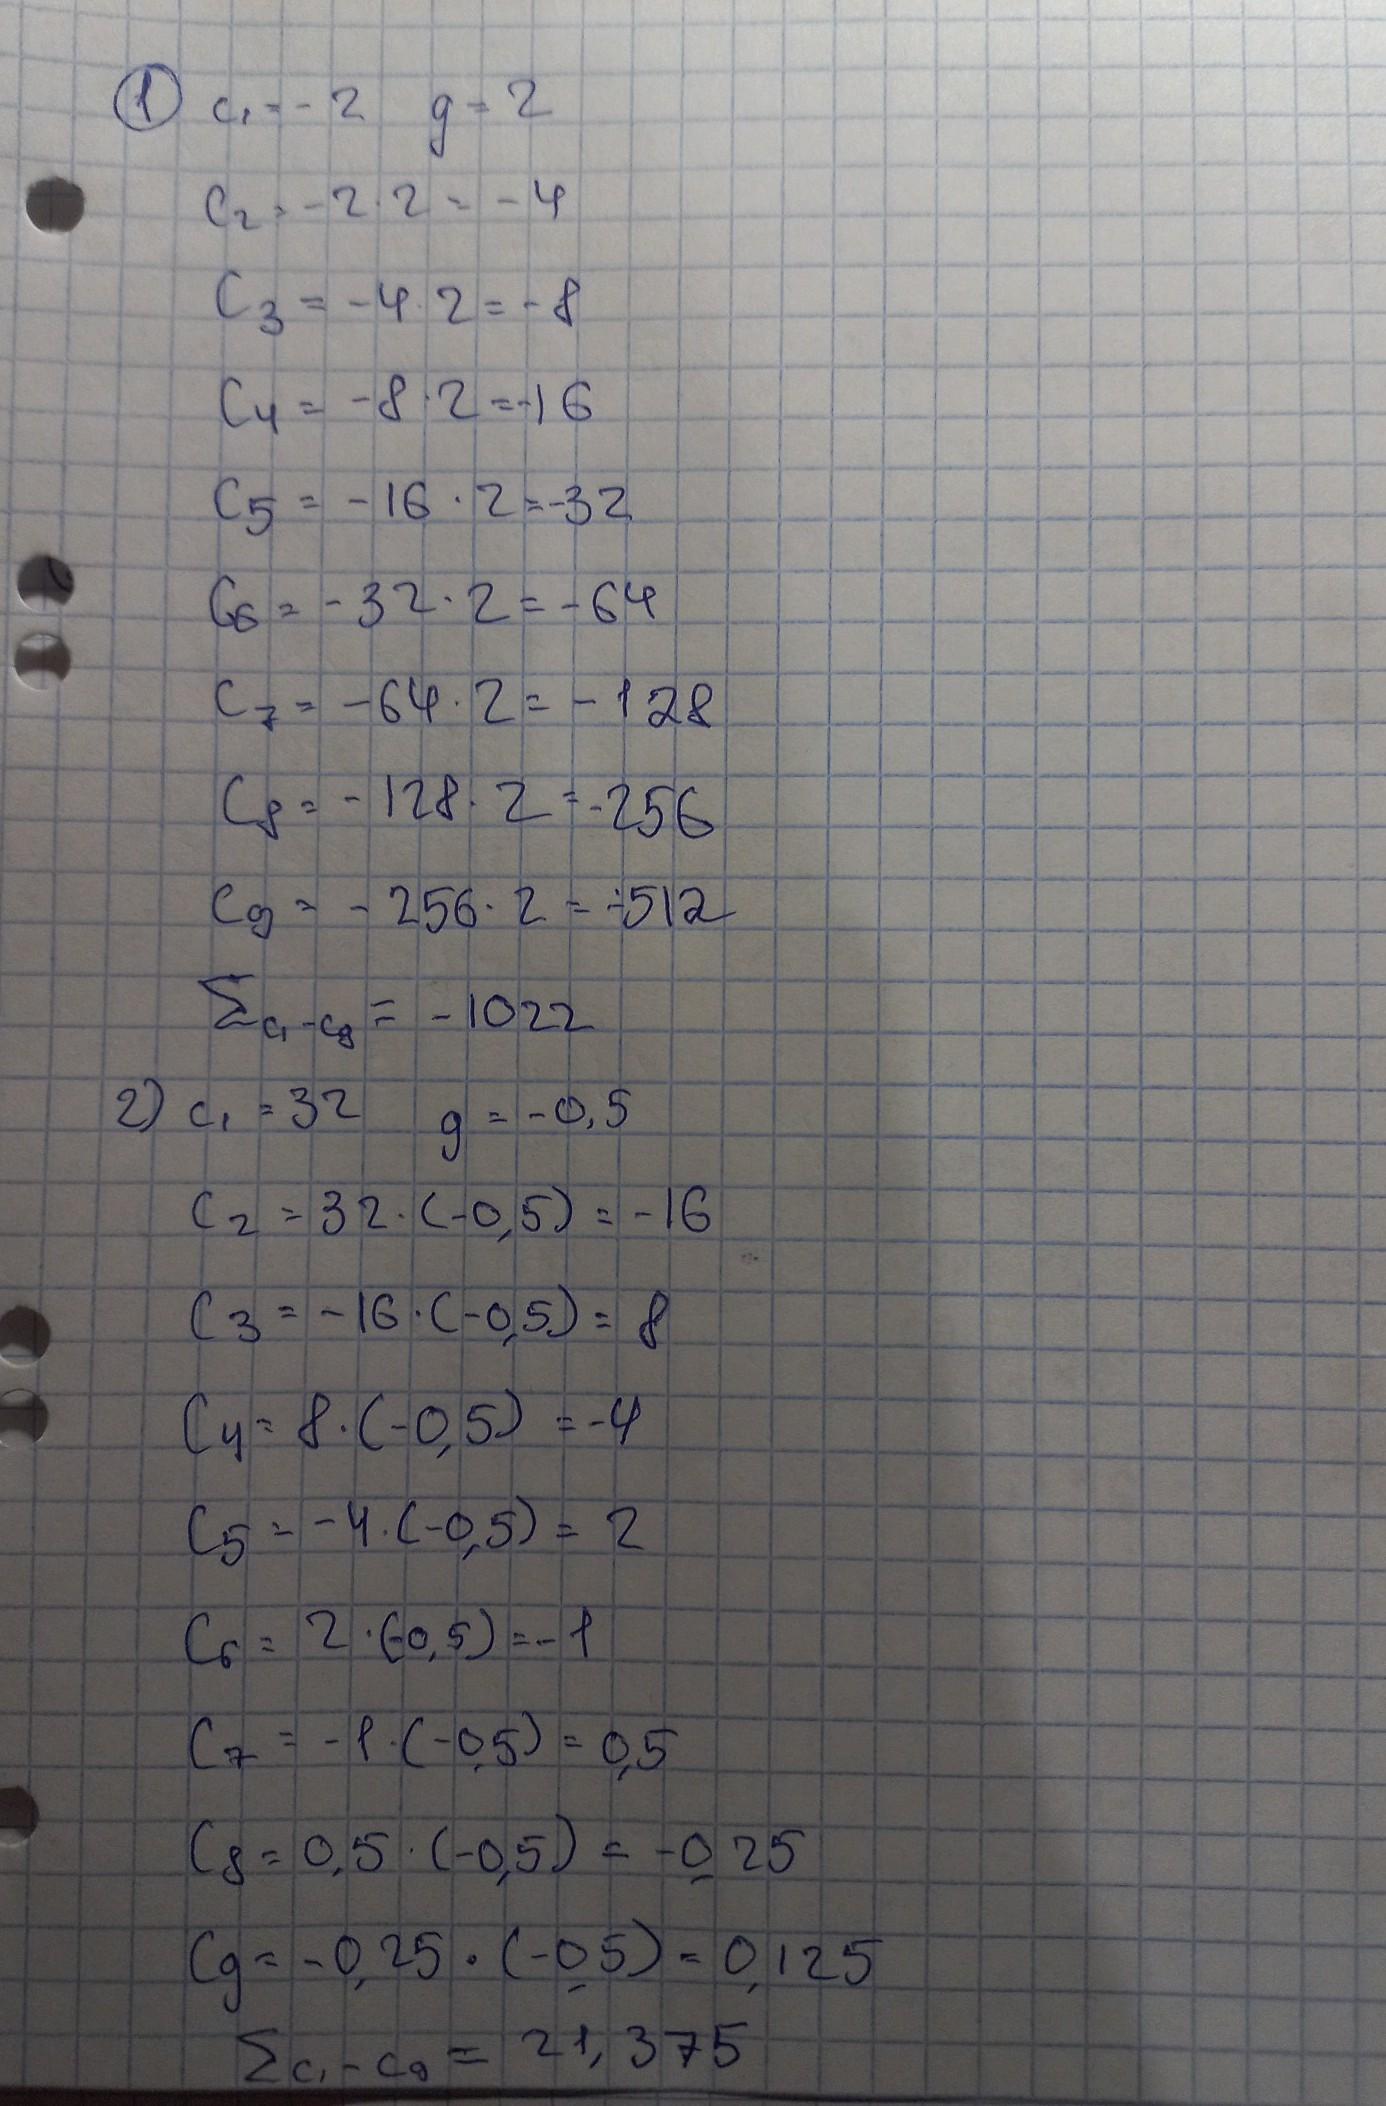 1 c₁ = -2 g = 2
C₂ = -2·2 = -4
C₃ = -4·2 = -8
C₄ = -8·2 = -16
C₅ = -16·2 = -32
C₆ = -32·2 = -64
C₇ = -64·2 = -128
C₈ = -128·2 = -256
C₉ = -256·2 = -512
Σc₁-c₉ = -1022
2) c₁ = 32 g = -0,5
C₂ = 32·(-0,5) = -16
C₃ = -16·(-0,5) = 8
C₄ = 8·(-0,5) = -4
C₅ = -4·(-0,5) = 2
C₆ = 2·(-0,5) = -1
C₇ = -1·(-0,5) = 0,5
C₈ = 0,5·(-0,5) = -0,25
C₉ = -0,25·(-0,5) = 0,125
Σc₁-c₉ = 21,375